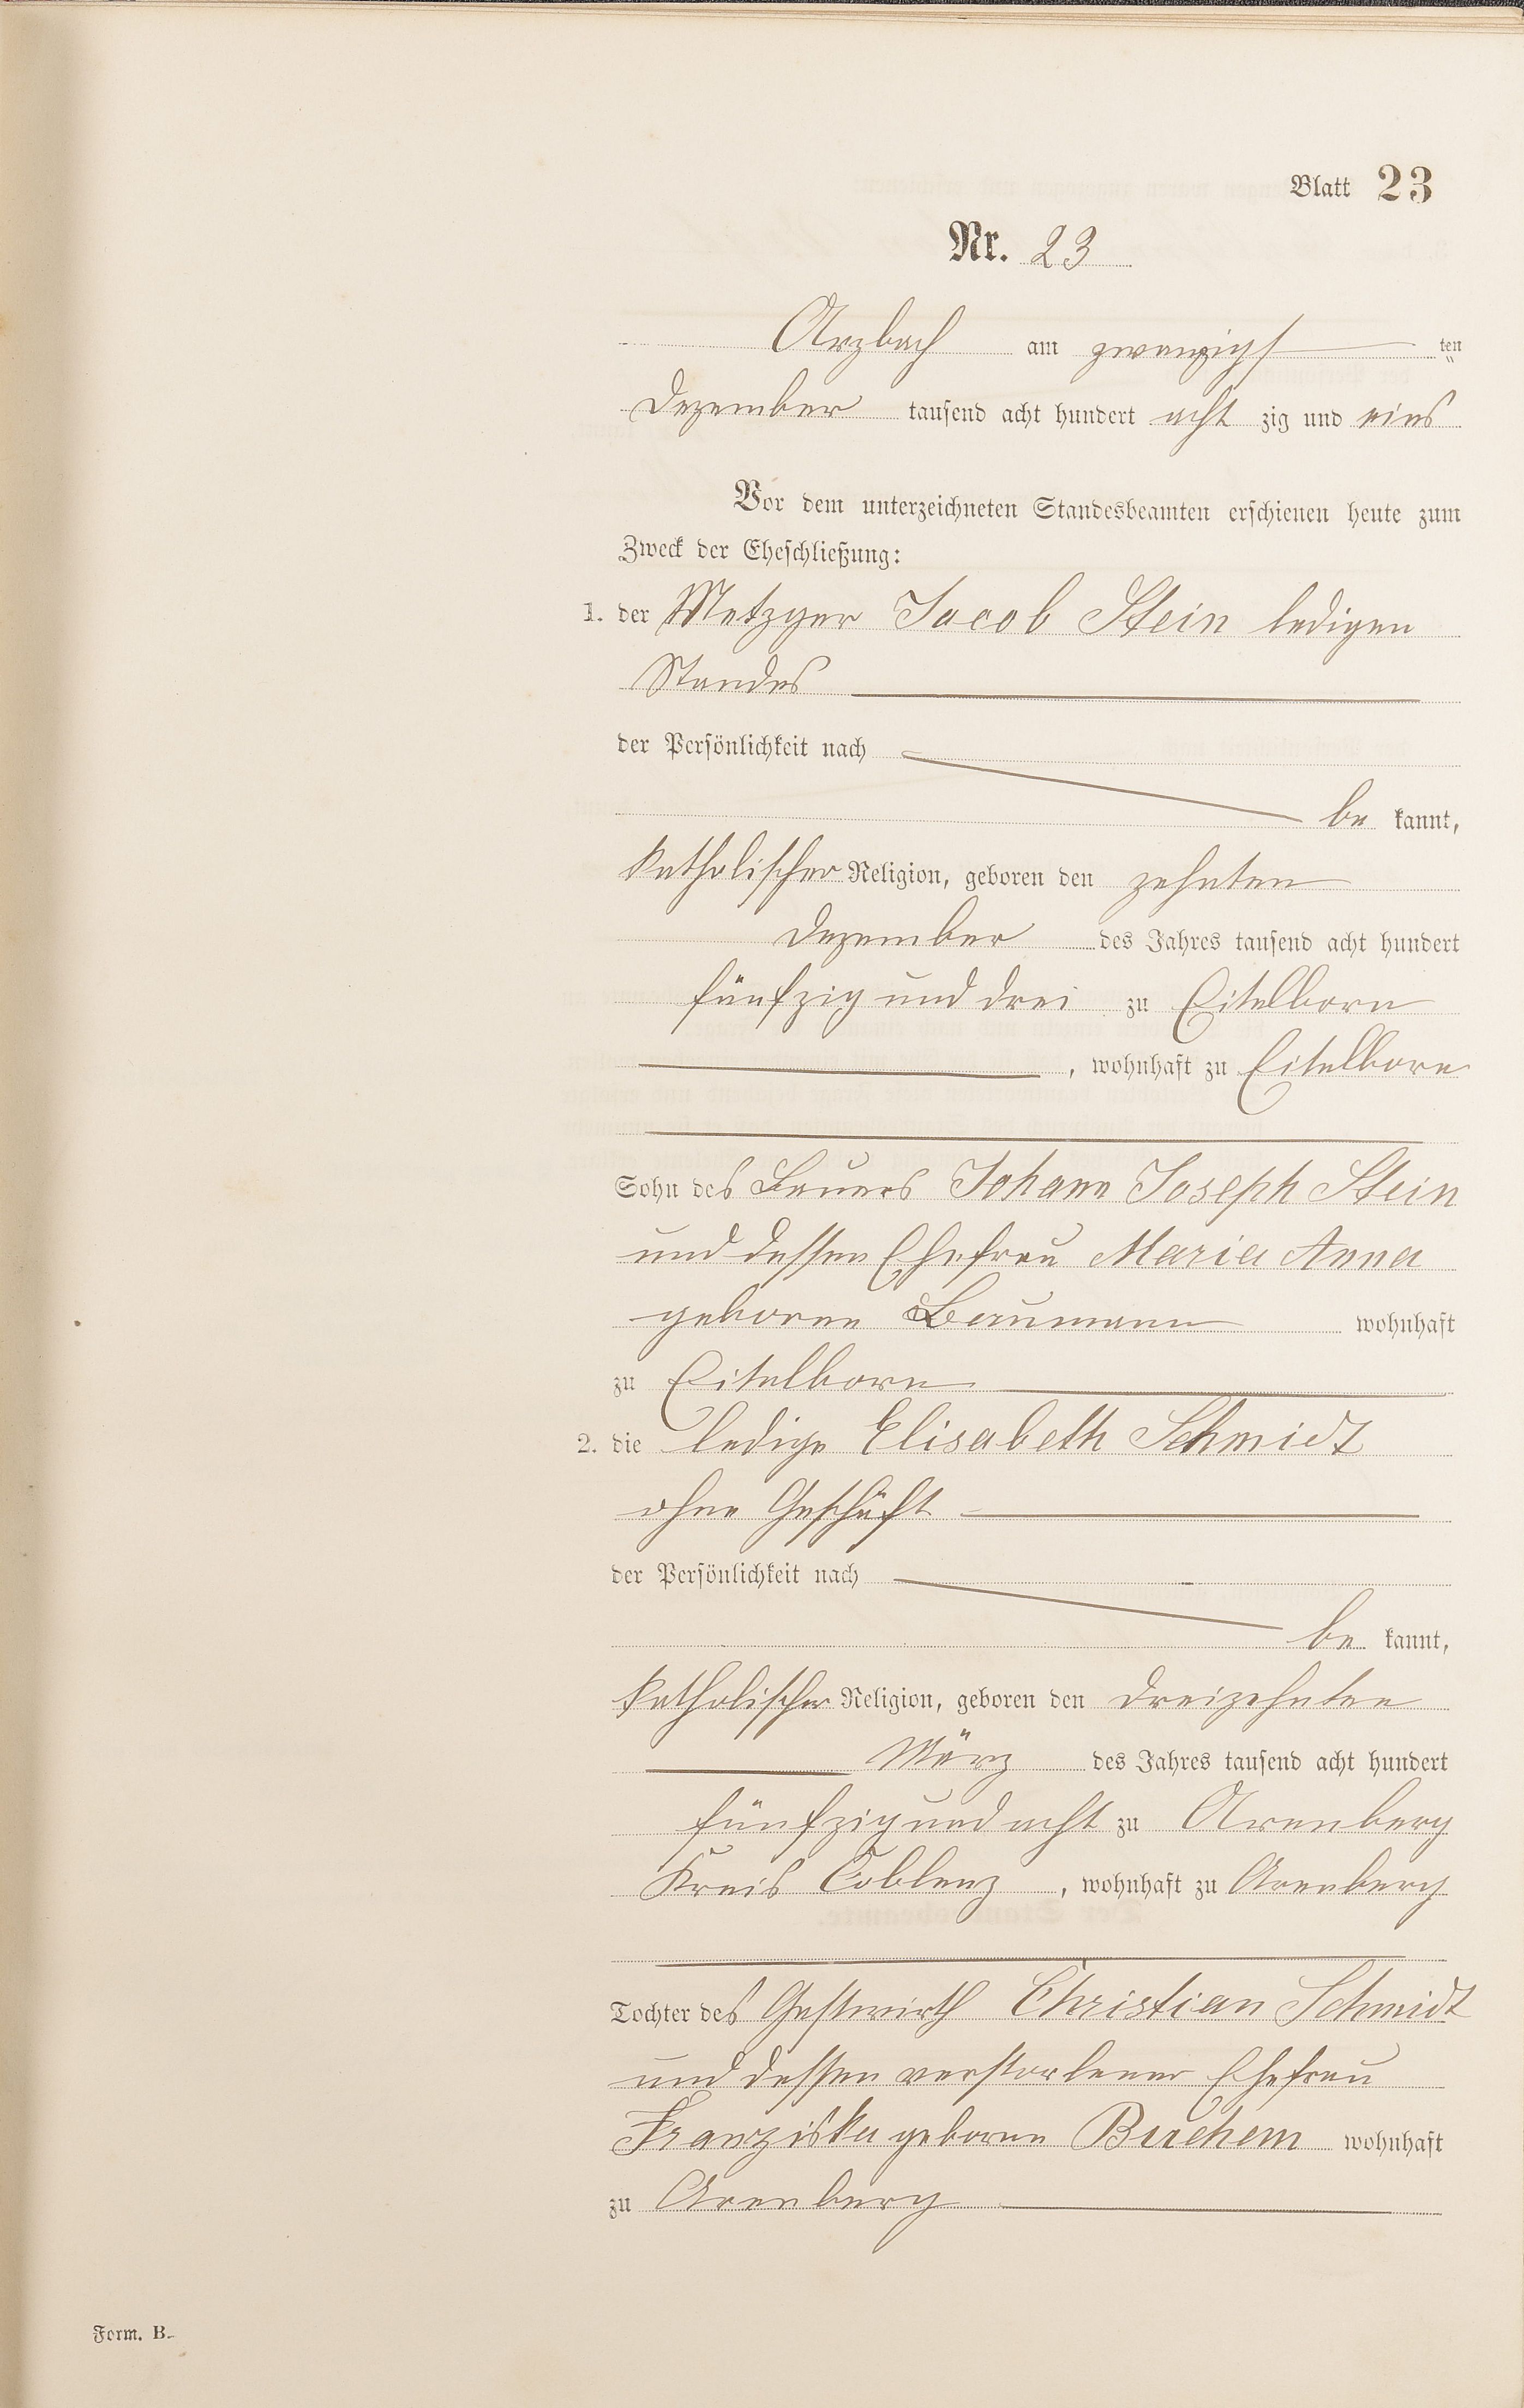 Blatt 23
Nr. 23
Arzbach am zwanzigs ten
Dezember tausend acht hundert acht zig und eins
Vor dem unterzeichneten Standesbeamten erschienen heute zum
Zweck der Eheschließung:
1. der Metzger Jacob Stein ledigen
Standes
der Persönlichkeit nach
be kannt,
katholischer Religion, geboren den zehnten
Dezember des Jahres tausend acht hundert
fünfzig und drei zu Eitelborn
, wohnhaft zu Eitelborn
Sohn des Bauers Johann Joseph Stein
und dessen Ehefrau Maria Anna
geborne Baumann wohnhaft
zu Eitelborn
2. die ledige Elisabeth Schmidt
ohne Geschäft
der Persönlichkeit nach
be kannt,
katholischer Religion, geboren den dreizehnten
März des Jahres tausend acht hundert
fünfzig und acht zu Arenberg
Kreis Coblenz , wohnhaft zu Arenberg
Tochter des Gastwirth Christian Schmidt
und dessen verstorbener Ehefrau
Franziska geborne Buchem wohnhaft
zu Arenberg
Form. B.